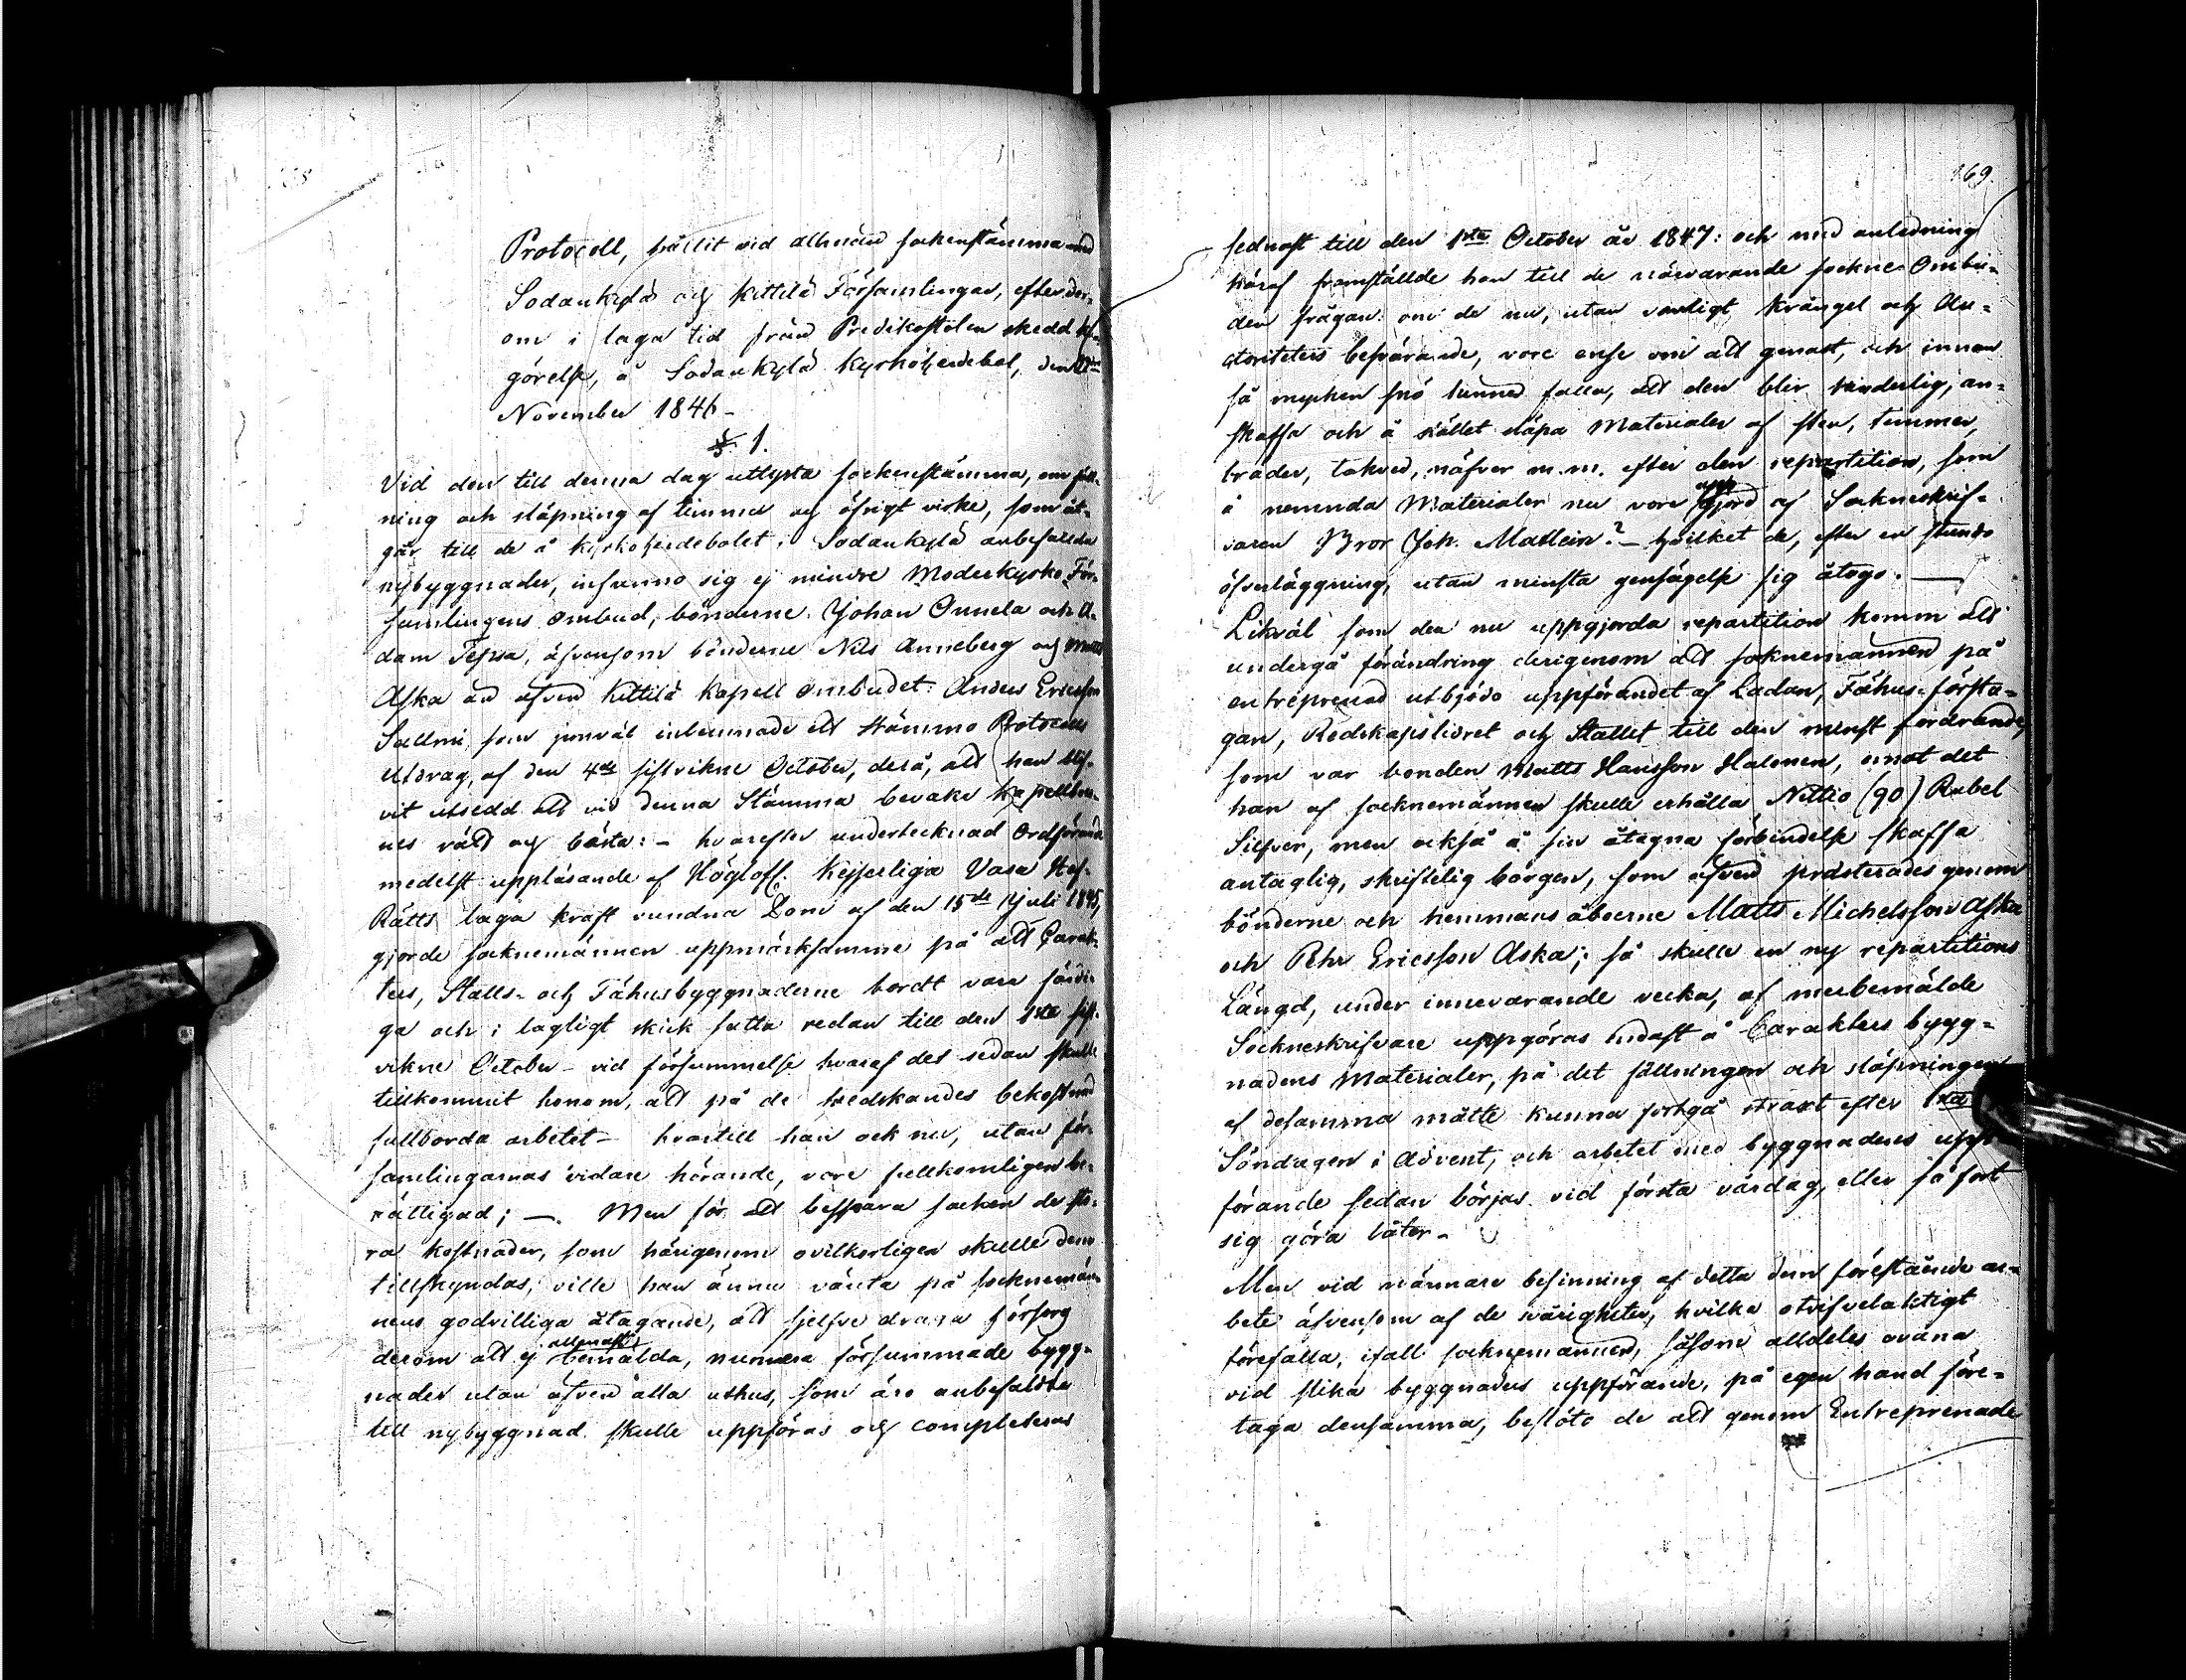 Protocoll, hållit vid allmän sockenstämma med
Sodankylä och Kittilä Församlingar, efter der-
om i laga tid från Predikostolen skedd kun-
görelse, å Sodankylä Kyrkoherdebol, den
November 1846 -
§ 1.
Vid den till denna dag utlysta sockenstämma, om fäll-
ning och släpning af timmer och öfrigt virke, som åt-
går till de å kyrkoherdebolet i Sodankylä anbefallda
nybyggnader, infunno sig ej mindre Moderkyrko För-
samlingens ombud, bönderne Johan Onnela och A-
dam Tepsa, äfvensom bönderne Nils Anneberg och Matts
Aska än äfven Kittilä Kapell ombudet: Anders Ericsson
Sallmi, som jemväl inlemnade ett stämmo Protocolls
Utdrag, af den 4de sistvikne October, derå, att han blif-
vit utsedd att vid denna Stämma bevaka kapellboer-
nes rätt och bästa: - hvarefter undertecknad Ordförande
medelst uppläsande af Höglofl. Kejserliga Vasa Hof-
Rätts laga kraft vundna Dom af den 15de Juli 1845,
gjorde socknemännen uppmärksamme på att Carak-
ters, Stalls- och Fähusbyggnaderne bordt vara färdi-
ga och i lagligt skick satta redan till den 1sta sist-
vikne October - vid försummelse hvaraf det sedan skulle
tillkommit honom, att på de tredskandes bekostnad
fullborda arbetet - hvartill han ock nu, utan för-
samlingarnas vidare hörande, vore fullkomligen be-
rättigad; -. Men för att bespara socken de sto-
ra kostnader, som härigenom ovilkorligen skulle dem
tillskyndas, ville han ännu vänta på socknemän-
nens godvilliga åtagande, att sjelfve draga försorg
derom att ej allenast bemälda, numera försummade bygg-
nader utan äfven alla uthus, som äro anbefallda
till nybyggnad skulle uppföras och completeras
169.
sednast till den 1sta October år 1847: och med anledning
häraf framställde han till de närvarande sockne Ombu-
den frågan: om de nu, utan vanligt krångel och Au-
ctoriteters besvärande, vore ense om att genast, och innan
så mycken snö hunned falla, att den blir hinderlig, an-
skaffa och å stället släpa Materialer af sten, timmer,
bräder, takved, näfver m.m. efter den repartition, som
å nemnda Materialer nu vore uppgjord af Sockneskrif-
varen Bror Joh. Mallein? - hvilket de, efter en stunds
öfverläggning, utan minsta gensägelse sig åtogo. -
Likväl som den nu uppgjorda repartition komm att
undergå förändring derigenom att socknemännen på
entreprenad utbjödo uppförandet af Ladan, Fähus-försto-
gan, Redskapslidret och Stallet till den minst fordrande,
som var bonden Matts Hansson Halonen, emot det
han af socknemännen skulle erhålla Nittio (90) Rubel
Silfver, men också å sin åtagna förbindelse skaffa
antaglig, skriftelig borgen, som äfven præsterades genom
bönderne och hemmans åboerne Matts Michelsson Aska
och Pehr Ericsson Aska; så skulle en ny repartitions
Längd, under innevarande vecka, af merbemälde
Sockneskrifvare uppgöras endast å Carakters bygg-
nadens Materialer, på det fällningen och släpningen
af desamma måtte kunna fortgå straxt efter 1sta
Söndagen i Advent, och arbetet med byggnadens upp-
förande sedan börjas vid första vårdag, eller så fort
sig göra låter. -
Men vid närmare besinning af detta dem förestående ar-
bete äfvensom af de svårigheter, hvilka otvifvelaktigt
förefalla, ifall socknemännen, såsom alldeles ovana
vid slika byggnaders uppförande, på egen hand före-
taga densamma, beslöto de att genom Entreprenade